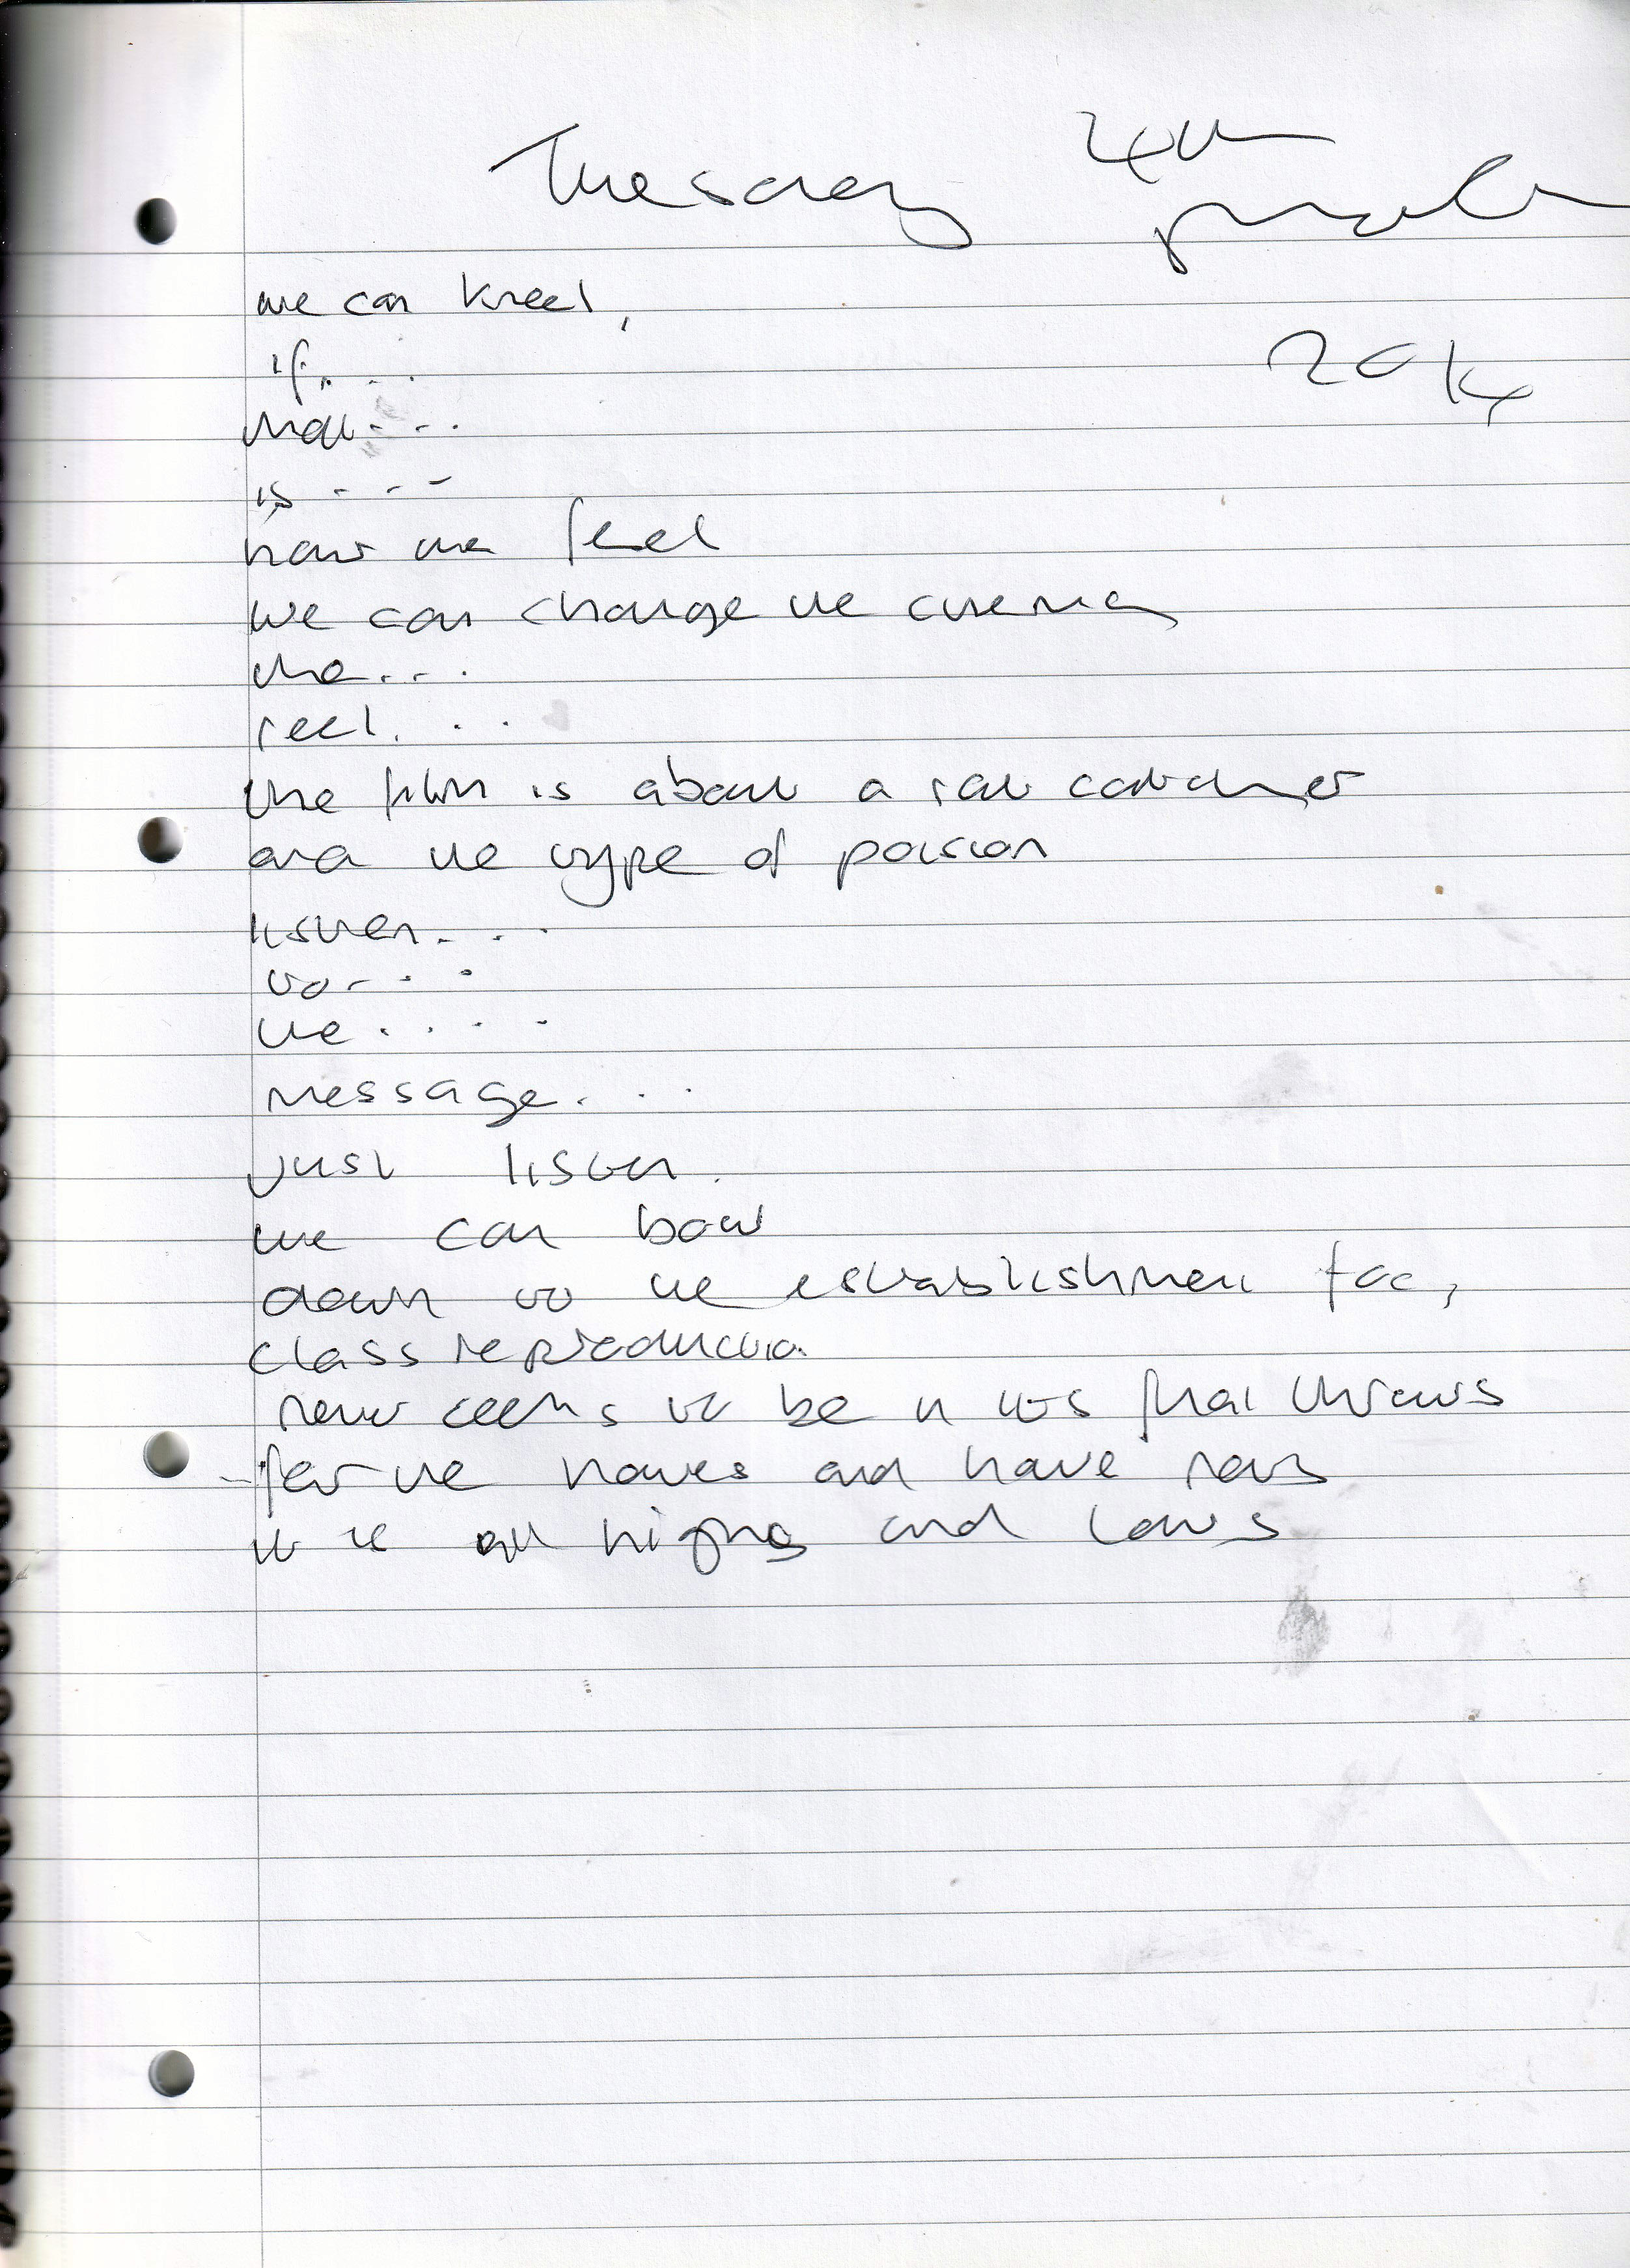 Tuesday 4th
march
2014
we can kneel,
if....
that...
is ---
how we feel
we can change the cinema
the...
reel...
the film is about a rat catcher
and the type of poision
listen...
to...
the....
message...
just listen.
we can bow
down to the establishment too,
class reproduction
now seems to be in its final throws
for the haves and have nots
it is all highs and lows